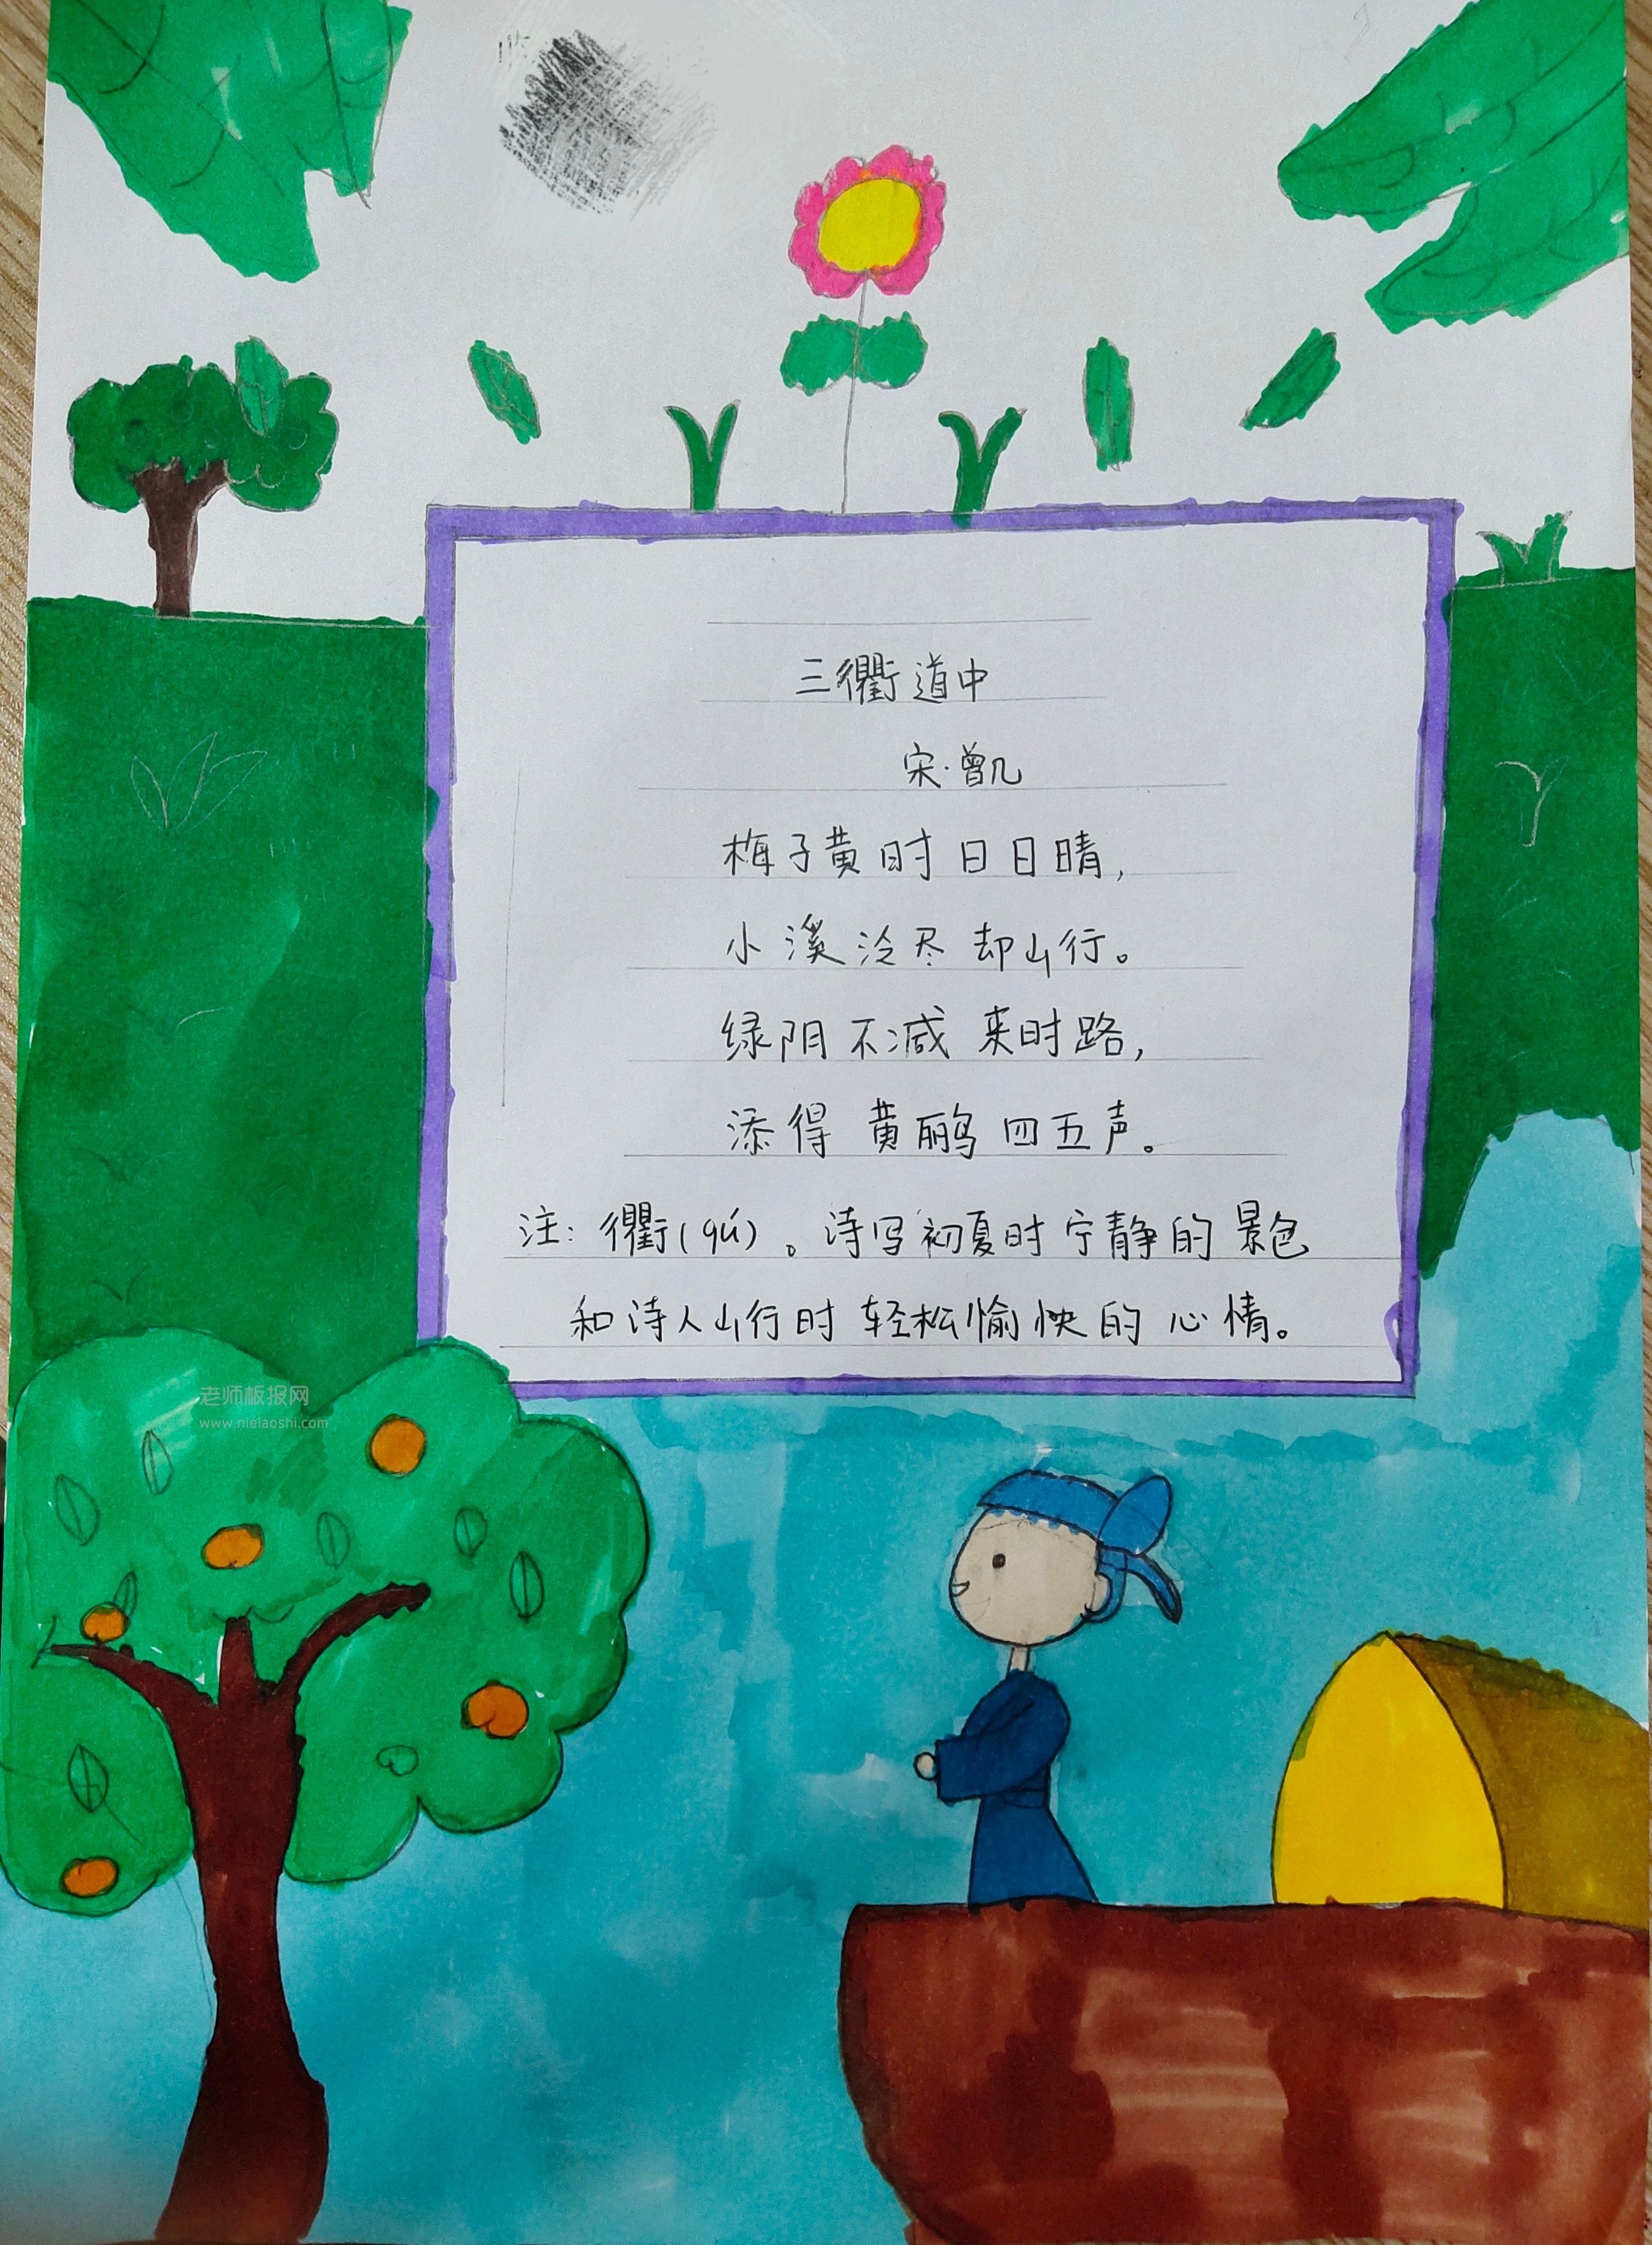 三衢道中
宋·曾几
梅子黄时日日晴，
小溪泠尽却山行。
绿阴不减来时路，
添得黄鹂四五声。
注：衢(qú)。诗写初夏时宁静的景色
和诗人山行时轻松愉快的心情。
老师板报网
www.nielaoshi.com